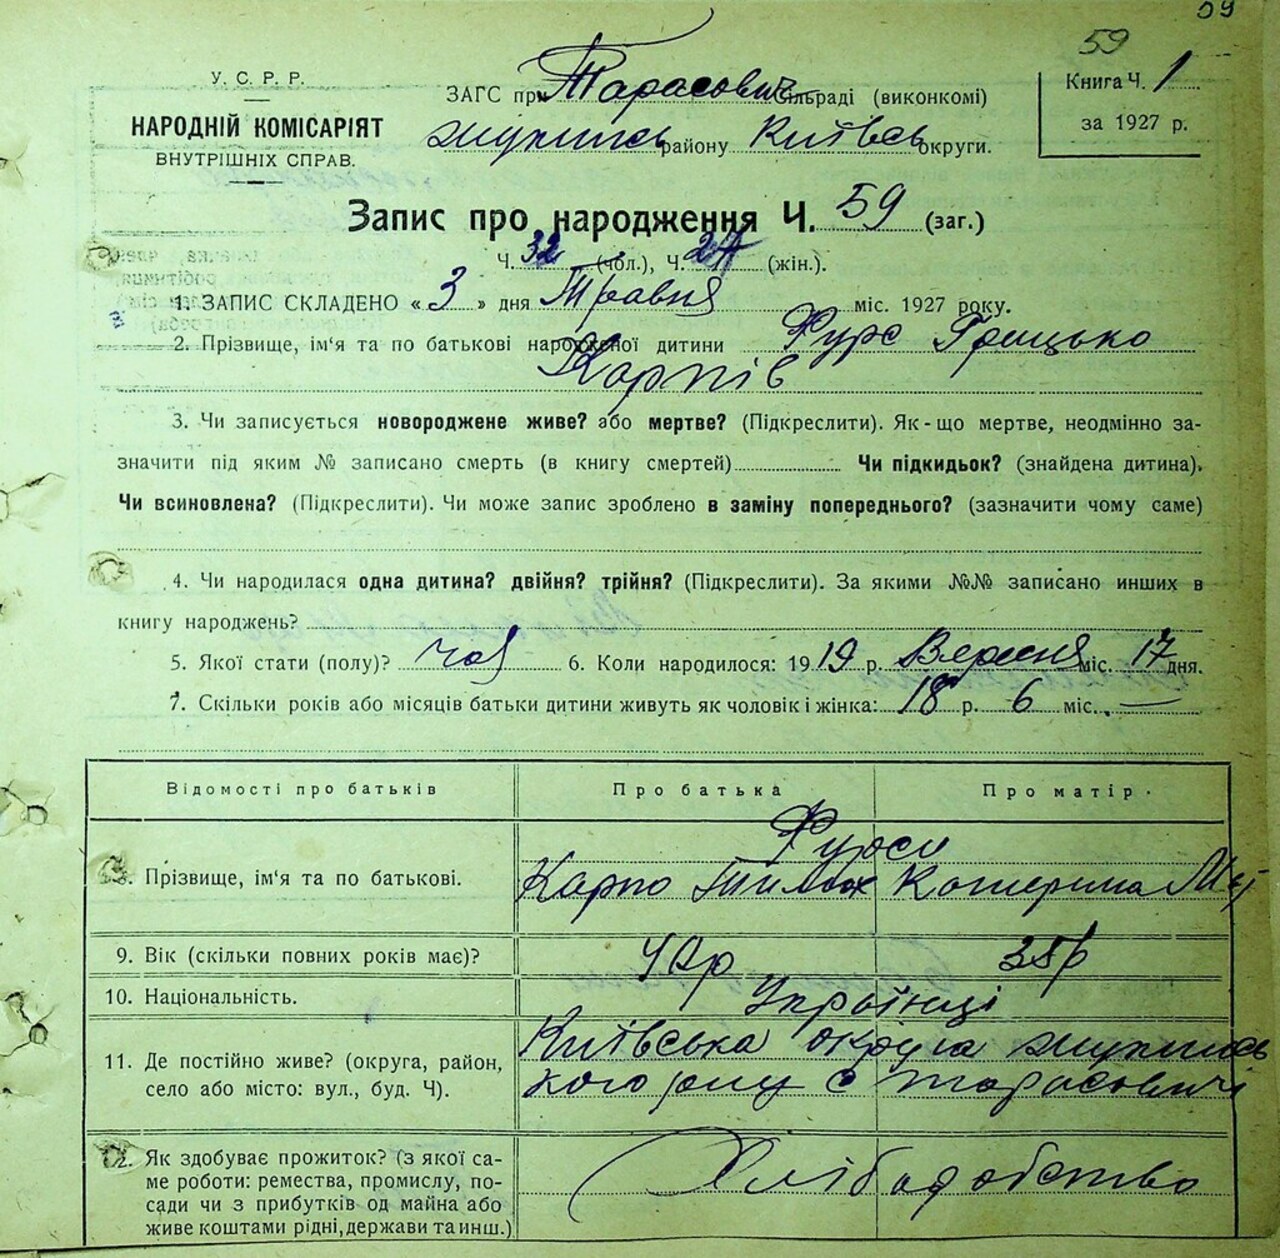 59
59
У. С. Р. Р.
НАРОДНІЙ КОМІСАРІЯТ
ВНУТРІШНІХ СПРАВ.
ЗАГС при Тарасович сільраді (виконкомі)
району Київсь округи.
Книга Ч. 1
за 1927 р.
Запис про народження Ч. 59 (заг.)
Ч. 32 (чол.), Ч. (жін.).
1. ЗАПИС СКЛАДЕНО « 3 » дня Травня міс. 1927 року.
2. Прізвище, ім‘я та по батькові народженої дитини Фурс Грицько
Карпів
3. Чи записується новороджене живе? або мертве? (Підкреслити). Як-що мертве, неодмінно за-
значити під яким № записано смерть (в книгу смертей) Чи підкидьок? (знайдена дитина).
Чи всиновлена? (Підкреслити). Чи може запис зроблено в заміну попереднього? (зазначити чому саме)
4. Чи народилася одна дитина? двійня? трійня? (Підкреслити). За якими №№ записано инших в
книгу народжень?
5. Якої стати (полу)? чол 6. Коли народилося: 1919 р. Вересня міс. 17 дня.
7. Скільки років або місяців батьки дитини живуть як чоловік і жінка: 18 р. 6 міс. —
Відомості про батьків Про батька Про матір.
Фурси
8. Прізвище, ім‘я та по батькові. Карпо Тимох Катерина
9. Вік (скільки повних років має)? 40р 38р
10. Національність. Українці
11. Де постійно живе? (округа, район, Київська округа
село або місто: вул., буд. Ч). кого рну с Тарасовичі
12. Як здобуває прожиток? (з якої са-
ме роботи: ремества, промислу, по- Хлібодобство
сади чи з прибутків од майна або
живе коштами рідні, держави та инш.)